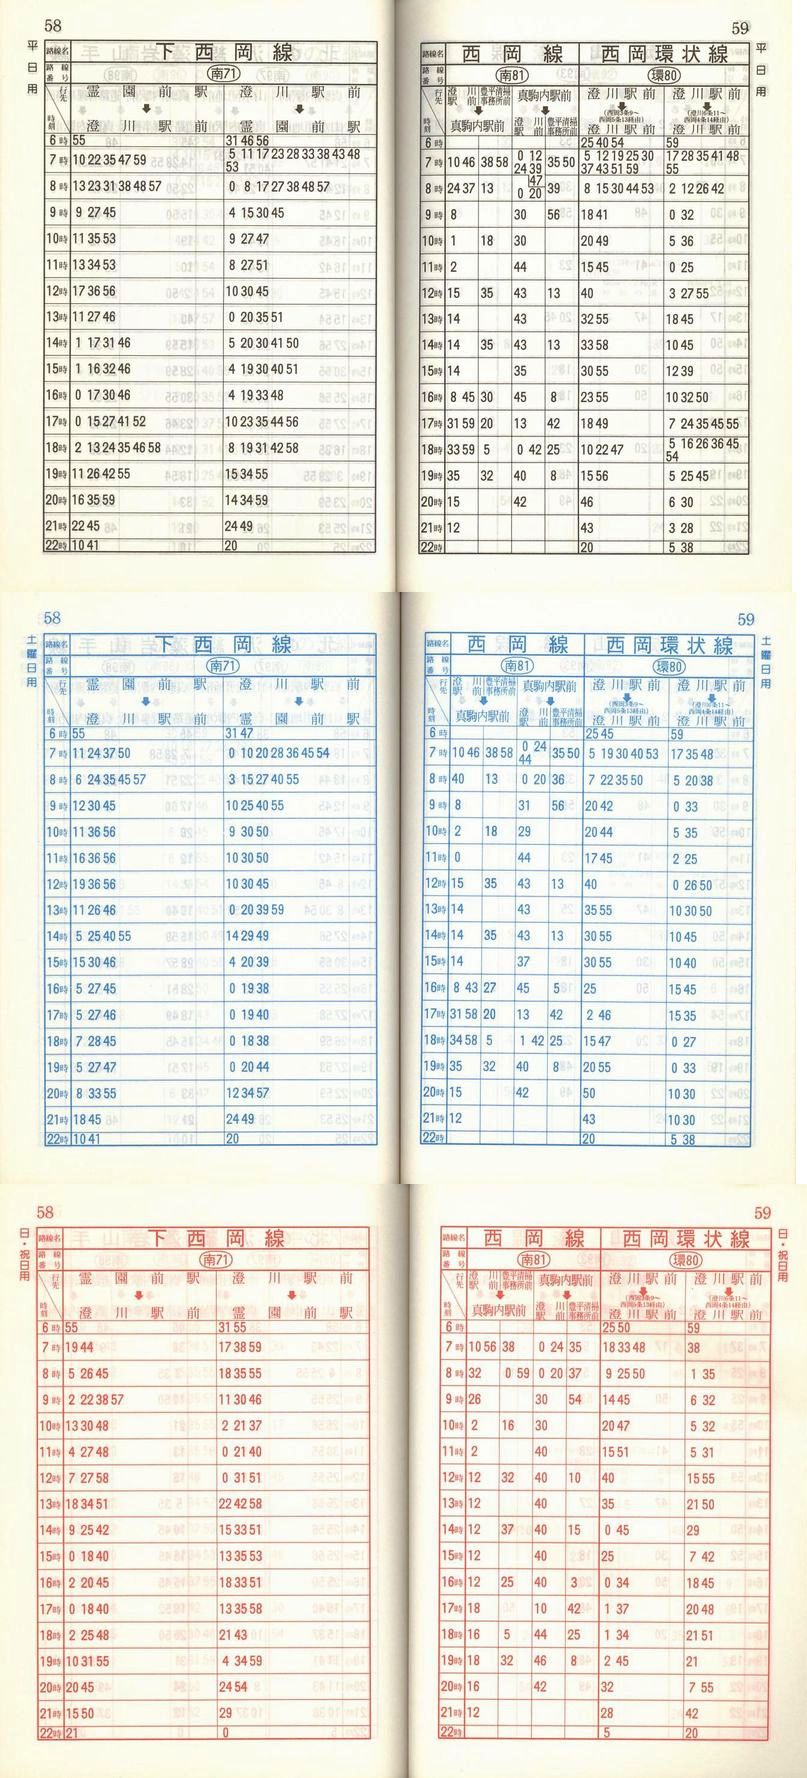 58
平日用
路線名 下西岡線
路線番号 南71
行先 霊園前駅 澄川駅前
時刻 澄川駅前 霊園前駅
6時 55 31 46 56
7時 10 22 35 47 59 5 11 17 23 28 33 38 43 48
53
8時 13 23 31 38 48 57 0 8 17 27 38 48 57
9時 9 27 45 4 15 30 45
10時 11 35 53 9 27 47
11時 13 34 53 8 27 51
12時 17 36 56 10 30 45
13時 11 27 46 0 20 35 51
14時 1 17 31 46 5 20 30 41 50
15時 1 16 32 46 4 19 30 40 51
16時 0 17 30 46 4 19 33 48
17時 0 15 27 41 52 10 23 35 44 56
18時 2 13 24 35 46 58 8 19 31 42 58
19時 11 26 42 55 15 34 55
20時 16 35 59 14 34 59
21時 22 45 24 49
22時 10 41 20
59
平日用
路線名 西岡線 西岡環状線
路線番号 南81 環80
行先 澄川駅前 豊平清掃事務所前 真駒内駅前 澄川駅前 澄川駅前
(西岡3条9~西岡5条13経由) (澄川6条11~西岡4条14経由)
時刻 真駒内駅前 澄川駅前 豊平清掃事務所前 澄川駅前 澄川駅前
6時 25 40 54 59
7時 10 46 38 58 0 12 35 50 5 12 19 25 30 17 28 35 41 48
24 39 37 43 51 59 55
47
8時 24 37 13 0 20 39 8 15 30 44 53 2 12 26 42
9時 8 30 56 18 41 0 32
10時 1 18 30 20 49 5 36
11時 2 44 15 45 0 25
12時 15 35 43 13 40 3 27 55
13時 14 43 32 55 18 45
14時 14 35 43 13 33 58 10 45
15時 14 35 30 55 12 39
16時 8 45 30 45 8 23 55 10 32 50
17時 31 59 20 13 42 18 49 7 24 35 45 55
18時 33 59 5 0 42 25 10 22 47 5 16 26 36 45
54
19時 35 32 40 8 15 56 5 25 45
20時 15 42 46 6 30
21時 12 43 3 28
22時 20 5 38
58
土曜日用
路線名 下西岡線
路線番号 南71
行先 霊園前駅 澄川駅前
時刻 澄川駅前 霊園前駅
6時 55 31 47
7時 11 24 37 50 0 10 20 28 36 45 54
8時 6 24 35 45 57 3 15 27 40 55
9時 12 30 45 10 25 40 55
10時 11 36 56 9 30 50
11時 16 36 56 10 30 50
12時 19 36 56 10 30 45
13時 11 26 46 0 20 39 59
14時 5 25 40 55 14 29 49
15時 15 30 46 4 20 39
16時 5 27 45 0 19 38
17時 5 27 46 0 19 40
18時 7 28 45 0 18 38
19時 5 27 47 0 20 44
20時 8 33 55 12 34 57
21時 18 45 24 49
22時 10 41 20
59
土曜日用
路線名 西岡線 西岡環状線
路線番号 南81 環80
行先 澄川駅前 豊平清掃事務所前 真駒内駅前 澄川駅前 澄川駅前
(西岡3条9~西岡5条13経由) (澄川6条11~西岡4条14経由)
時刻 真駒内駅前 澄川駅前 豊平清掃事務所前 澄川駅前 澄川駅前
6時 25 45 59
7時 10 46 38 58 0 24 35 50 5 19 30 40 53 17 35 48
44
8時 40 13 0 20 36 7 22 35 50 5 20 38
9時 8 31 56 20 42 0 33
10時 2 18 29 20 44 5 35
11時 0 44 17 45 2 25
12時 15 35 43 13 40 0 26 50
13時 14 43 35 55 10 30 50
14時 14 35 43 13 30 55 10 45
15時 14 37 30 55 10 40
16時 8 43 27 45 5 25 15 45
17時 31 58 20 13 42 2 46 15 35
18時 34 58 5 1 42 25 15 47 0 27
19時 35 32 40 8 20 55 0 33
20時 15 42 50 10 30
21時 12 43 10 30
22時 20 5 38
58
日・祝日用
路線名 下西岡線
路線番号 南71
行先 霊園前駅 澄川駅前
時刻 澄川駅前 霊園前駅
6時 55 31 55
7時 19 44 17 38 59
8時 5 26 45 18 35 55
9時 2 22 38 57 11 30 46
10時 13 30 48 2 21 37
11時 4 27 48 0 21 40
12時 7 27 58 0 31 51
13時 18 34 51 22 42 58
14時 9 25 42 15 33 51
15時 0 18 40 13 35 53
16時 2 20 45 18 33 51
17時 0 18 40 13 35 58
18時 2 25 48 21 43
19時 10 31 55 4 34 59
20時 20 45 24 54
21時 15 50 29
22時 21 0
59
日・祝日用
路線名 西岡線 西岡環状線
路線番号 南81 環80
行先 澄川駅前 豊平清掃事務所前 真駒内駅前 澄川駅前 澄川駅前
(西岡3条9~西岡5条13経由) (澄川6条11~西岡4条14経由)
時刻 真駒内駅前 澄川駅前 豊平清掃事務所前 澄川駅前 澄川駅前
6時 25 50 59
7時 10 56 38 0 24 35 18 33 48 38
8時 32 0 59 0 20 37 9 25 50 1 35
9時 26 30 54 14 45 6 32
10時 2 16 30 20 47 5 32
11時 2 40 15 51 5 31
12時 12 32 40 10 40 15 55
13時 12 40 35 21 50
14時 12 37 40 15 0 45 29
15時 12 40 25 7 42
16時 12 25 40 3 0 34 18 45
17時 18 10 42 1 37 20 48
18時 16 5 44 25 1 34 21 51
19時 18 32 46 8 2 45 21
20時 16 42 32 7 55
21時 12 28 42
22時 5 20